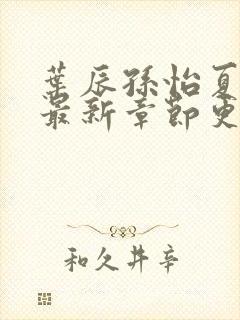 葉辰孫怡夏
最新章節更
和久井辛